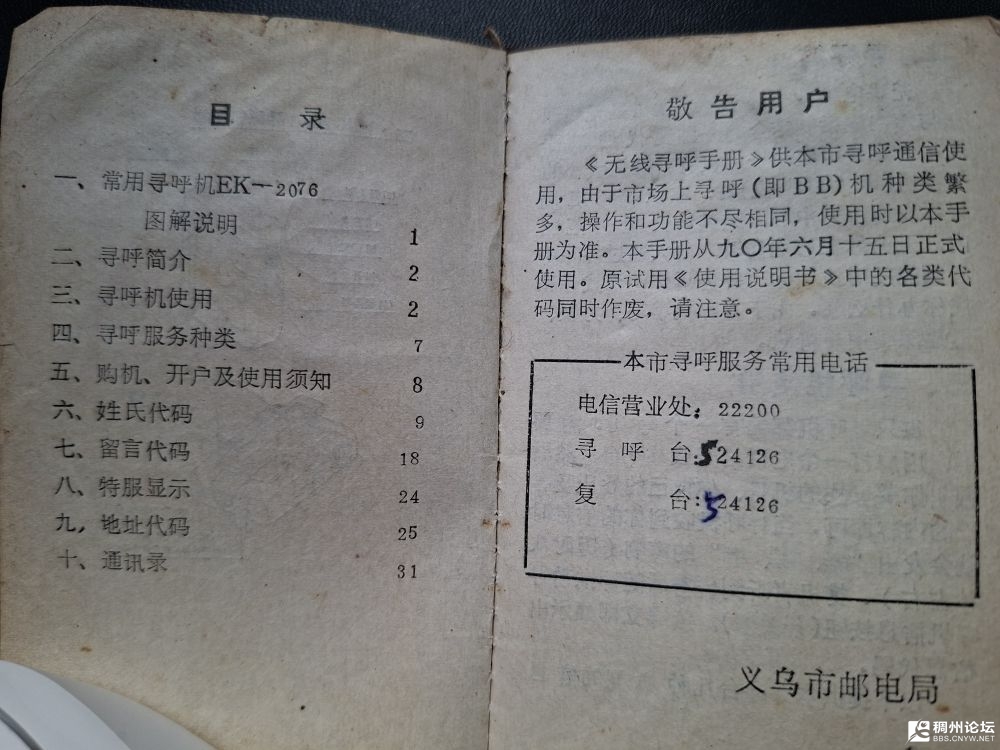 目 录
一、常用寻呼机EK—2076
图解说明 1
二、寻呼简介 2
三、寻呼机使用 2
四、寻呼服务种类 7
五、购机、开户及使用须知 8
六、姓氏代码 9
七、留言代码 18
八、特服显示 24
九，地址代码 25
十、通讯录 31
敬告用户
《无线寻呼手册》供本市寻呼通信使
用，由于市场上寻呼(即BB)机种类繁
多，操作和功能不尽相同，使用时以本手
册为准。本手册从九〇年六月十五日正式
使用。原试用《使用说明书》中的各类代
码同时作废，请注意。
本市寻呼服务常用电话
电信营业处：22200
寻 呼 台：524126
复 台：524126
义乌市邮电局
稠州论坛
BBS.CNYW.NET